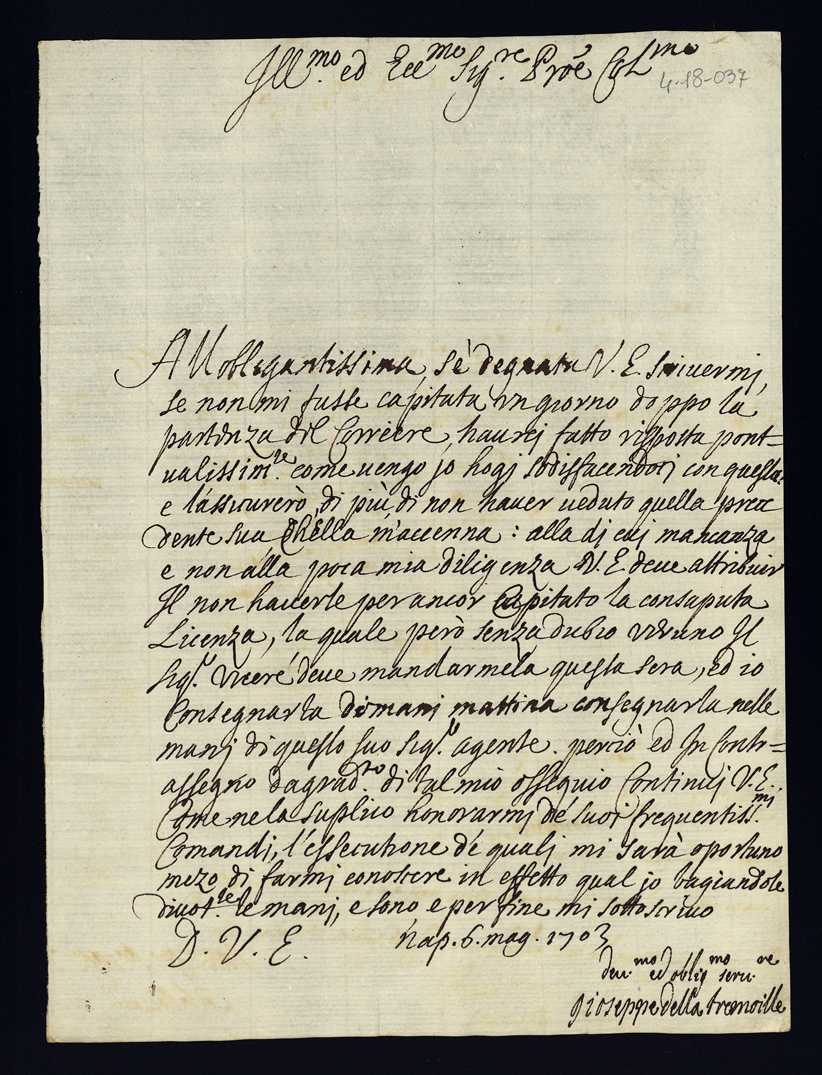 Ill.mo ed Ecc.mo Sig.re Prōe Col.mo
4-18-037
All obligantissima sè degnata V. E. scriuermi,
se non mi fusse capitata vn giorno doppo la
partenza del Corriere, haurej fatto risposta pont=
ualissim.te come uengo jo hogj sodisfacendocj con questa:
e l'assicurerò, di più di non hauer ueduto quella prece
dente sua Chella m'accenna: alla di cuj mancanza
e non alla poca mia diligenza V. E. deue attribuir
Il non hauerle per ancor Capitato la consaputa
Licenza, la quale però senza dubio veruno Il
Sig.r Vicerè deue mandarmela questa sera, ed io
Consegnarla dimanj mattina consegnarla nelle
manj di questo suo Sig.r agente. perciò ed In Contr=
assegno dagrad.to di tal mio ossequio Continuj V. E.
Come ne la suplico honorarmj de suoi frequentiss.mj
Comandi, l'essecutione de qualj mi sarà oportuno
mezo di farmj conoscere in effetto qual jo bagiandole
diuot.te le manj, e sono e per fine mi sottoscriuo
D. V. E. Nap. 6. mag. 1703
deu.mo ed oblig.mo seru.re
Gioseppe della tremoille